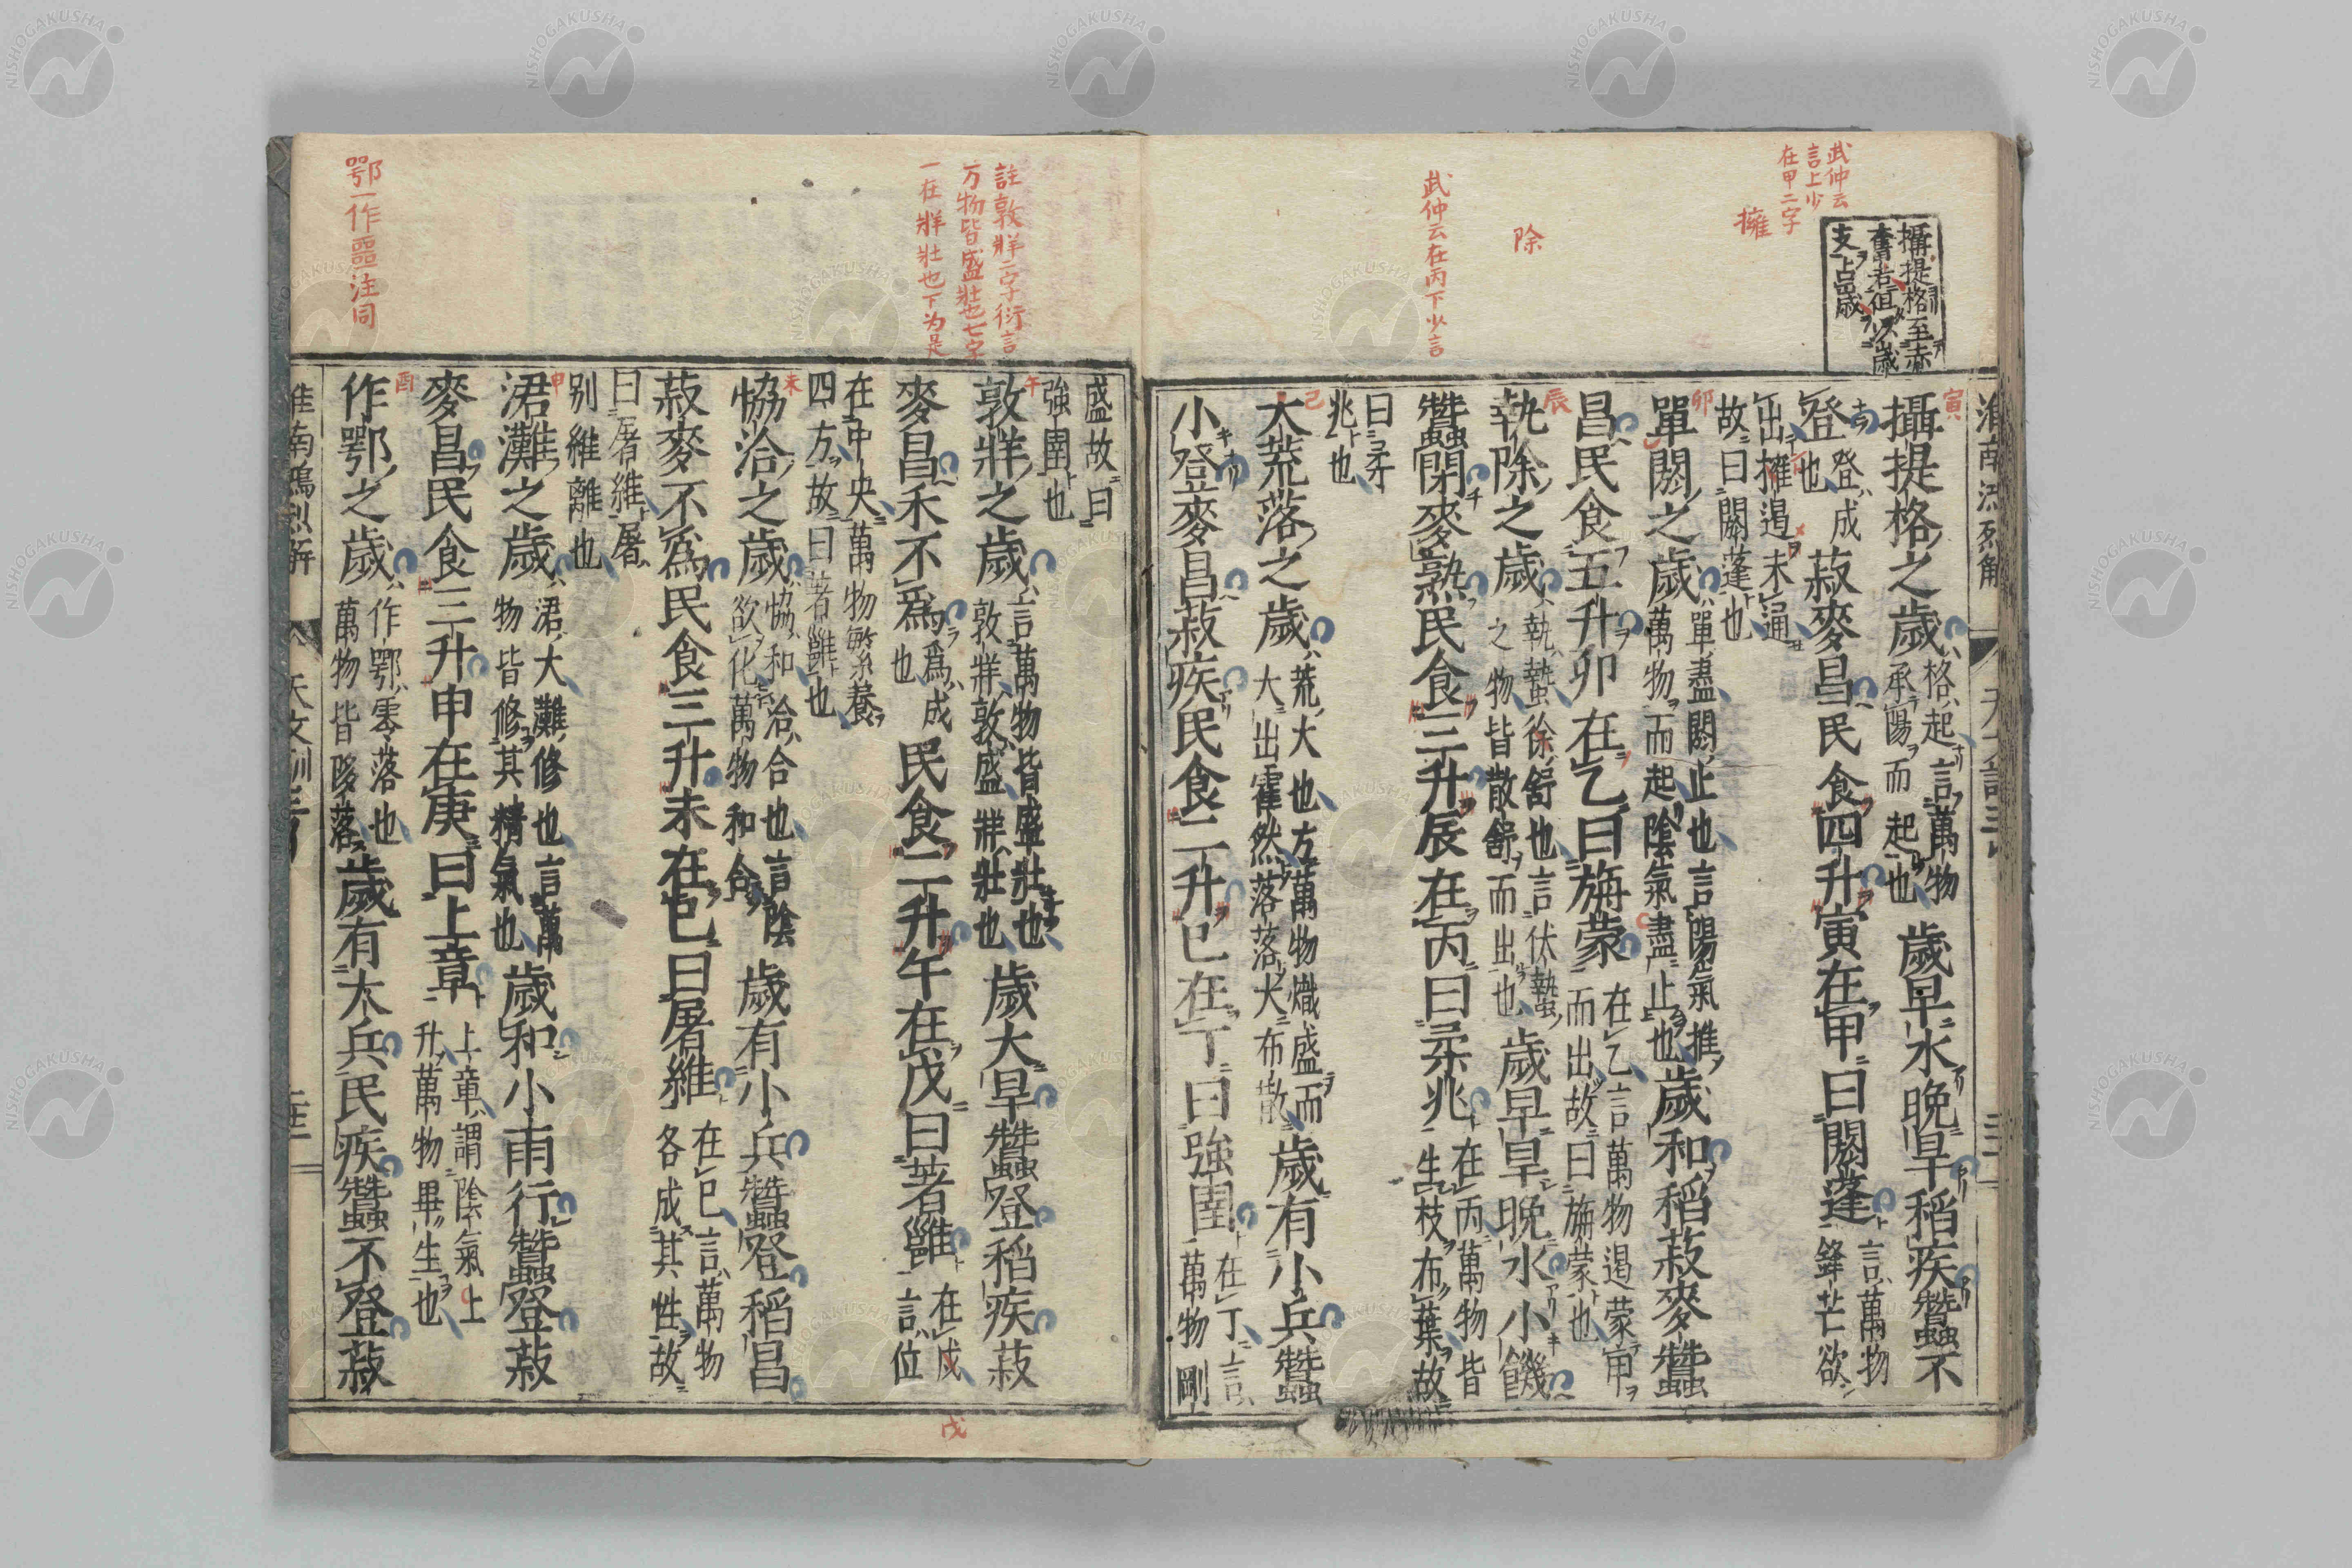 淮南鴻烈解 天文訓三
攝提格至赤
奮若但以歲
支占歲
武仲云
言上少
在甲二字
擁
除
武仲云在丙下少言
寅
攝提格之歲格起言萬物承陽而起也歲早水晚旱稻疾蠶不
登登成也菽麥昌民食四升寅在甲曰閼蓬言萬物鋒芒欲
出擁遏未通故曰閼蓬也
卯
單閼之歲單盡閼止也言陽氣推萬物而起陰氣盡止也歲和稻菽麥蠶
昌民食五升卯在乙曰旃蒙在乙言萬物遏蒙甲而出故曰旃蒙也
辰
執除之歲執蟄徐舒也言伏蟄之物皆散舒而出也歲早旱晚水小饑
蠶閉麥熟民食三升辰在丙曰柔兆在丙萬物皆生枝布葉故
曰柔兆也
巳
大荒落之歲荒大也方萬物熾盛而大出霍然落落大布散歲有小兵蠶
小登麥昌菽疾民食二升巳在丁曰強圉在丁言萬物剛
註敦牂二字衍言
万物皆盛壯也七字
一在牂壯也下为是
鄂一作噩注同
盛故曰強圉也
午
敦牂之歲言萬物皆盛壯也敦牂敦盛牂壯也歲大旱蠶登稻疾菽
麥昌禾不爲爲成也民食二升午在戊曰著雝在戊言位
戊
在中央萬物繁養四方故曰著雝也
未
協洽之歲協和洽合也言陰欲化萬物和合歲有小兵蠶登稻昌
菽麥不爲民食三升未在巳曰屠維在巳言萬物各成其性故
曰屠維屠別維離也
申
涒灘之歲涒大灘修也言萬物皆修其精氣也歲和小雨行蠶登菽
麥昌民食三升申在庚曰上章上章謂陰氣上升萬物畢生也
酉
作鄂之歲作鄂零落也萬物皆陊落歲有大兵民疾蠶不登菽
淮南鴻烈解 天文訓
NISHOGAKUSHA